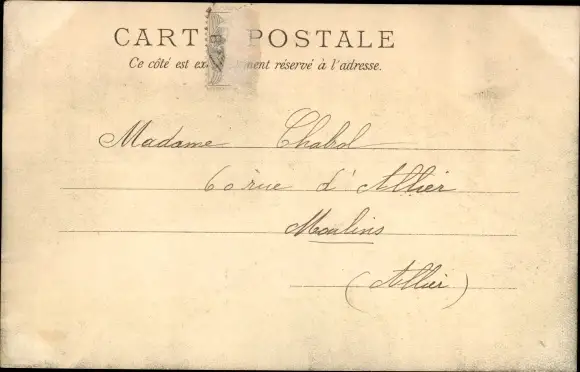 CARTE POSTALE
Ce côté est exclusivement réservé à l'adresse.
Madame Chabol
60 rue d'Allier
Moulins
(Allier)